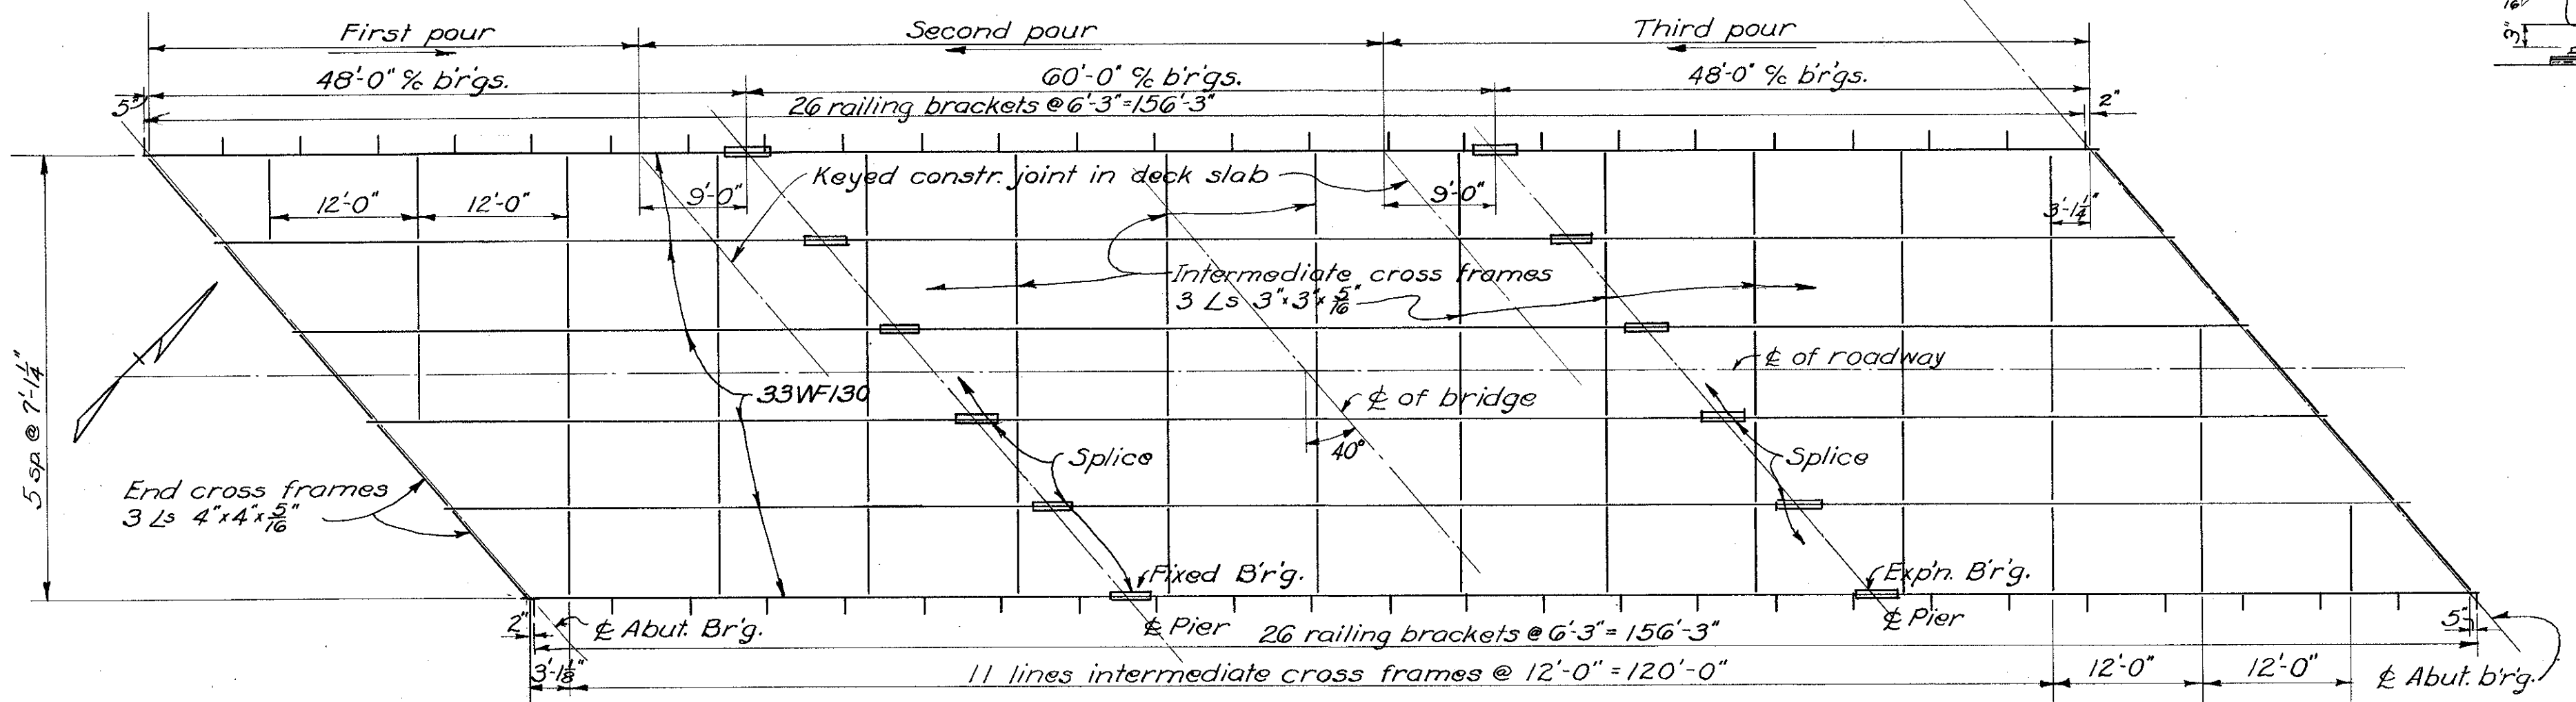 First pour
Second pour
Third pour
48'-0" c/c b'r'gs.
60'-0" c/c b'r'gs.
48'-0" c/c b'r'gs.
5"
26 railing brackets @ 6'-3" = 156'-3"
2"
3"
12'-0"
12'-0"
9'-0"
Keyed constr. joint in deck slab
9'-0"
3'-1 1/4"
Intermediate cross frames
3 Ls 3"x3"x 5/16"
5 sp. @ 7'-1 1/4"
℄ of roadway
33WF130
℄ of bridge
40°
Splice
Splice
End cross frames
3 Ls 4"x4"x 5/16"
Fixed B'r'g.
Exp'n. B'r'g.
2"
℄ Abut. Br'g.
℄ Pier
26 railing brackets @ 6'-3" = 156'-3"
℄ Pier
5"
3'-1 1/8"
11 lines intermediate cross frames @ 12'-0" = 120'-0"
12'-0"
12'-0"
℄ Abut. b'r'g.